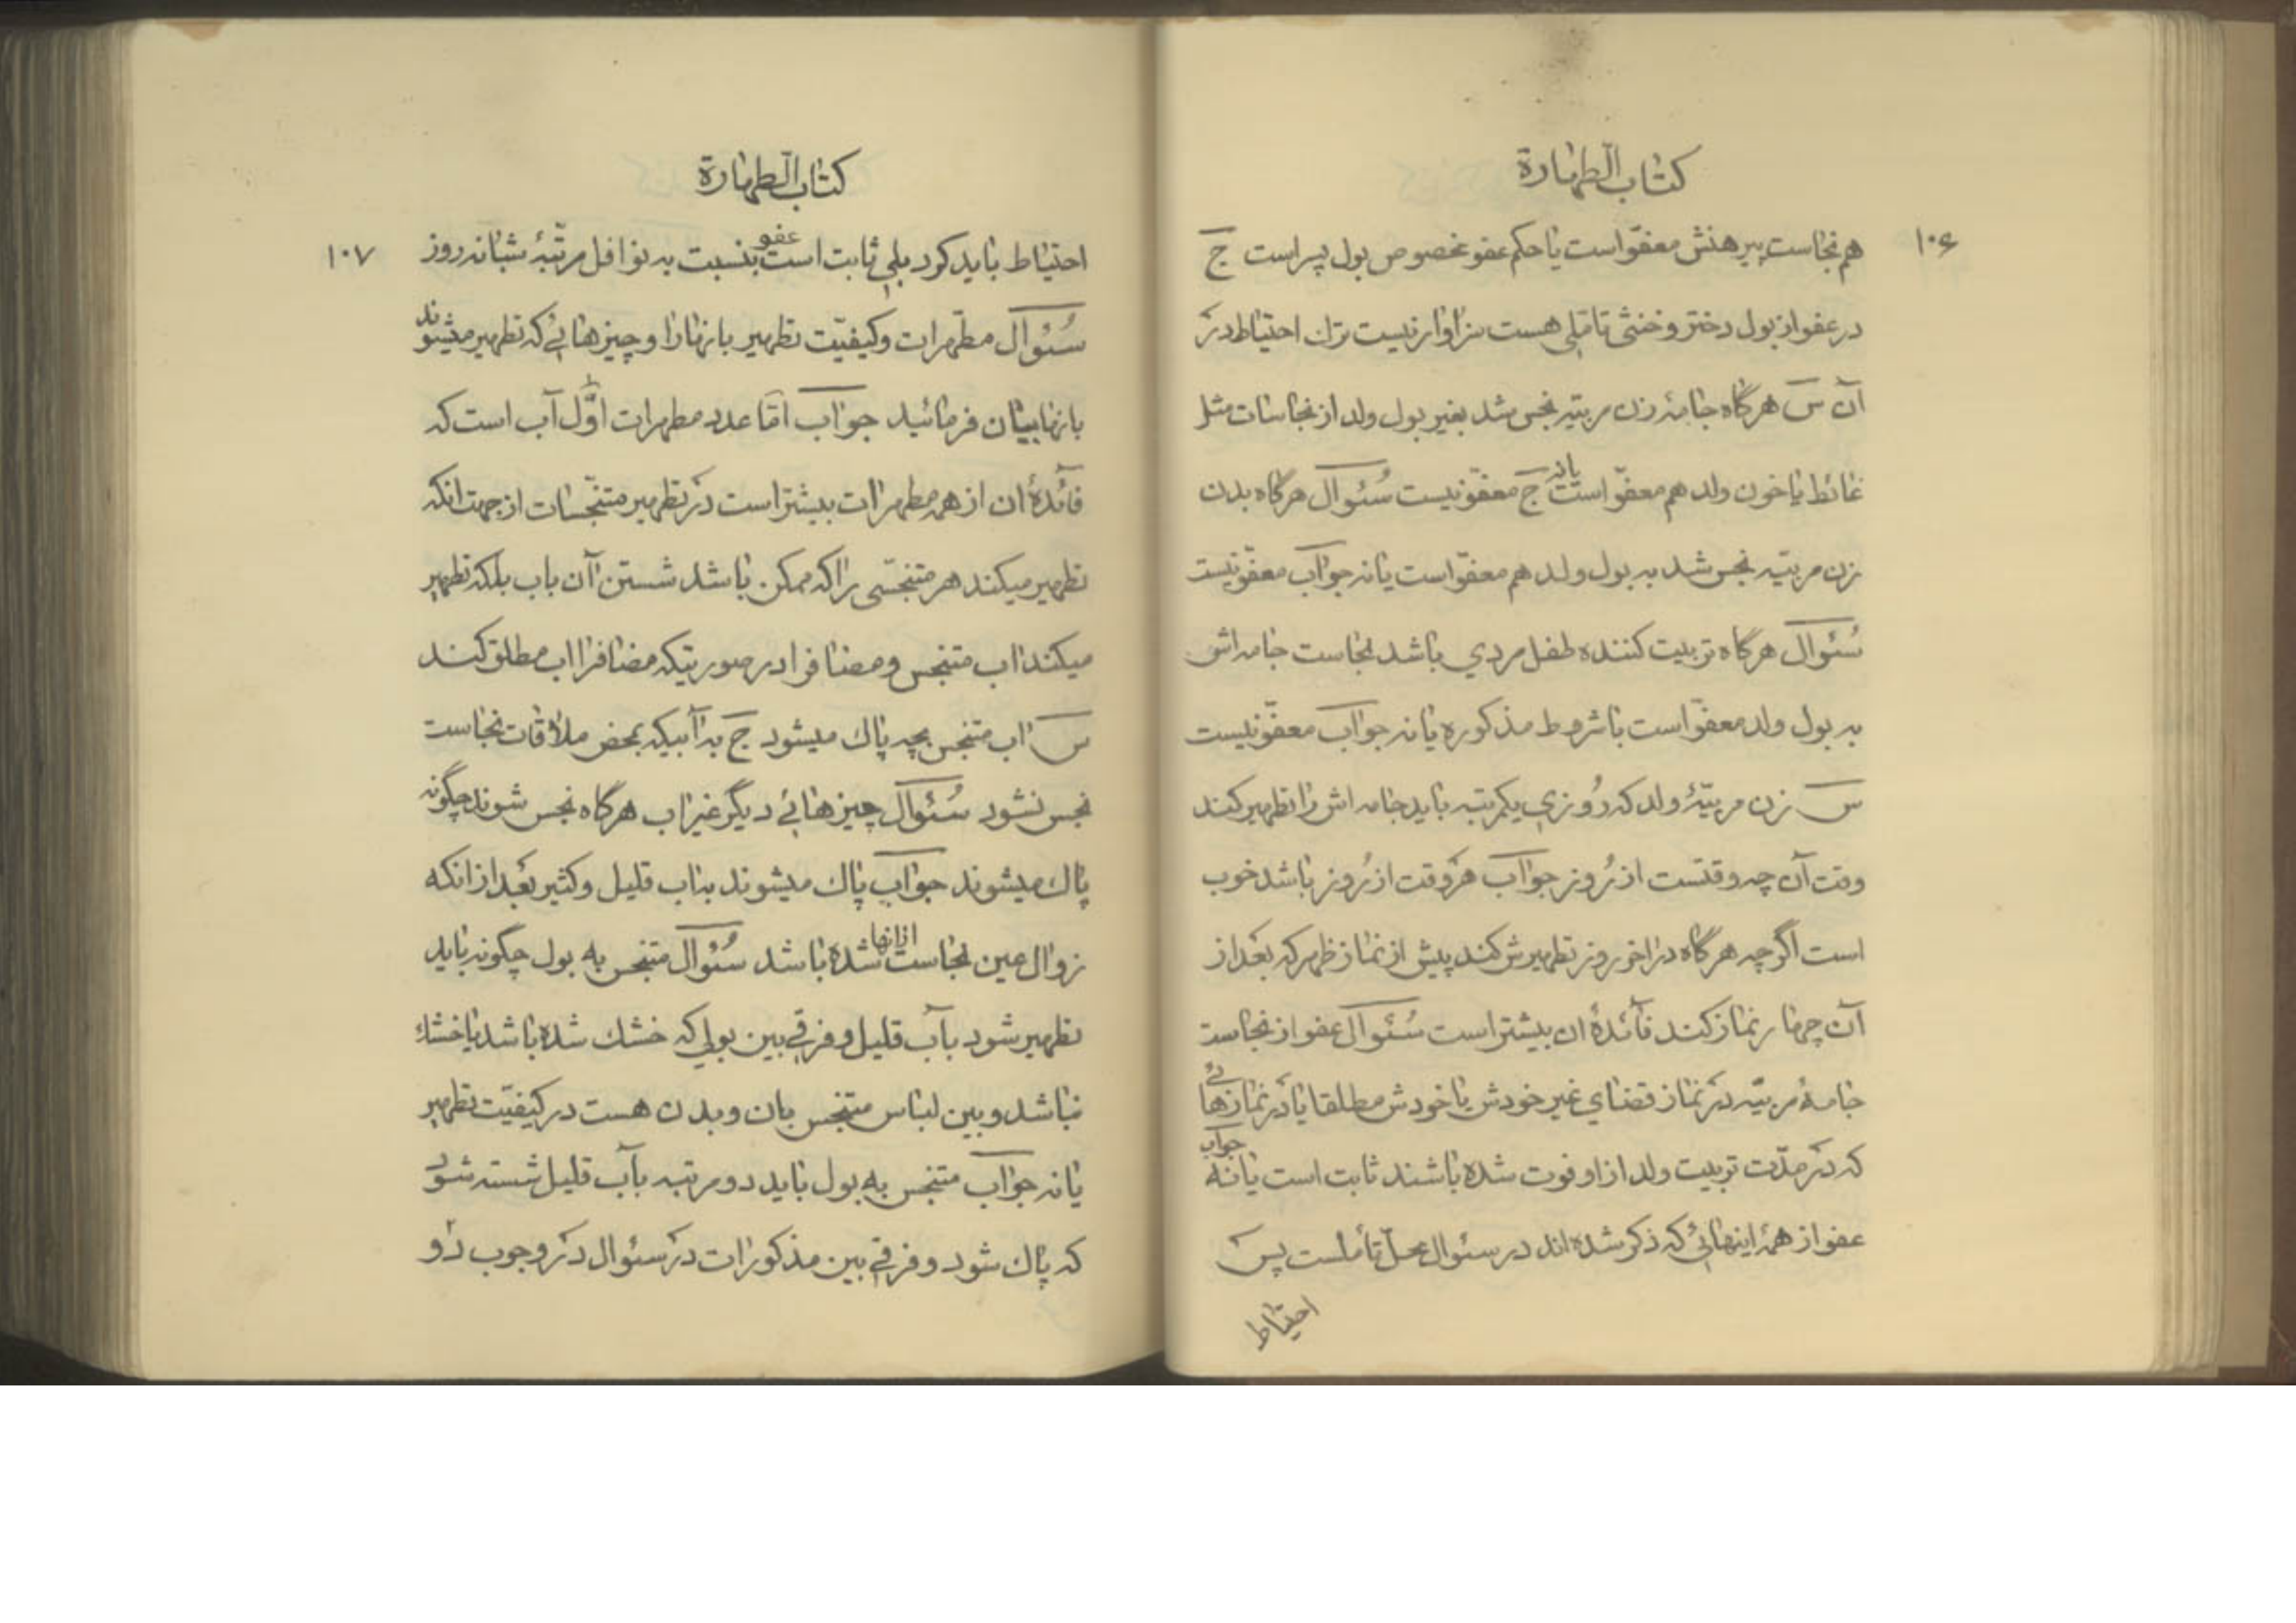 کتاب الطهارة
۱۰۶
هم نجاست پیرهنش معفوّ است یا حکم عفو مخصوص بول پسر است ج
در عفو از بول دختر و خنثی تاملی هست سزاوار نیست ترك احتیاط در
آن س هرگاه جامۀ زن مربیّه نجس شد بغیر بول ولد از نجاسات مثل
غائط یا خون ولد هم معفوّ است یا نه ج معفوّ نیست سُئوال هرگاه بدن
زن مربیّه نجس شد به بول ولد هم معفوّ است یا نه جواب معفوّ نیست
سُئوال هرگاه تربیت کننده طفل مردي باشد نجاست جامه اش
به بول ولد معفوّ است با شروط مذکوره یا نه جواب معفوّ نیست
س زن مربیّۀ ولد که رُوزي یکمرتبه باید جامه اش را تطهیر کند
وقت آن چه وقتست از رُوز جواب هر وقت از رُوز باشد خوب
است اگر چه هرگاه در اخر روز تطهیرش کند پیش از نماز ظهر که بعد از
آن چهار نماز کند فآئدۀ ان بیشتر است سُئوال عفو از نجاست
جامۀ مربیّه در نماز قضاي غیر خودش یا خودش مطلقا یا در نمازهائے
که در مدّت تربیت ولد از او فوت شده باشند ثابت است یا نه جواب
عفو از همۀ اینهائی که ذکر شده اند در سئوال محلّ تأملست پس
احتیاط
کتاب الطهارة
۱۰۷
احتیاط باید کرد بلي ثابت است عفو بنسبت به نوافل مرتّبۀ شبانه روز
سُئوال مطهرات و کیفیّت تطهیر بانها را و چیزهائی که تطهیر میشوند
بانها بیان فرمائید جواب امّا عدد مطهرات اوّل آب است که
فآئدۀ ان از همه مطهرات بیشتر است در تطهیر متنجّسات از جهت انکه
تطهیر میکند هر متنجّسی را که ممکن باشد شستن آن باب بلکه تطهیر
میکند اب متنجس و مضاف را در صورتیکه مضاف را اب مطلق کند
س اب متنجس بچه پاك میشود ج به آبیکه بمحض ملاقات نجاست
نجس نشود سُئوال چیزهائے دیگر غیر اب هرگاه نجس شوند چگونه
پاك میشوند جواب پاك میشوند به اب قلیل و کثیر بعد از انکه
زوال عین نجاست ازانها شده باشد سُئوال متنجس به بول چگونه باید
تطهیر شود بآب قلیل و فرقي بین بولي که خشك شده باشد یا خشك
نباشد و بین لباس متنجس بان و بدن هست در کیفیّت تطهیر
یا نه جواب متنجس به بول باید دو مرتبه بآب قلیل شسته شود
که پاك شود و فرقي بین مذکورات در سئوال در وجوب دو